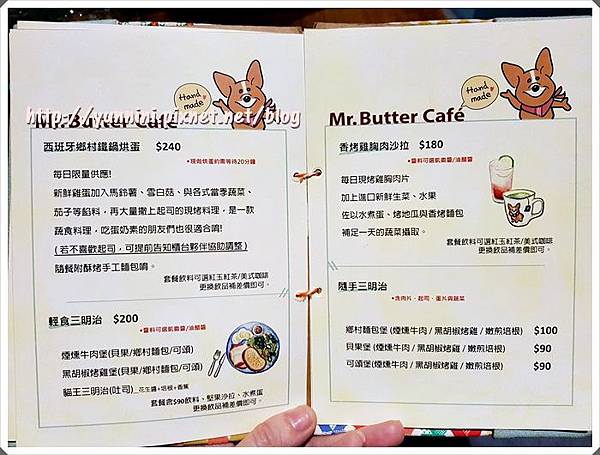 Hand made
Mr.Butter Café
西班牙鄉村鐵鍋烘蛋 $240
•現做烘蛋約需等待20分鐘
每日限量供應!
新鮮雞蛋加入馬鈴薯、雪白菇、與各式當季蔬菜、
茄子等餡料，再大量撒上起司的現烤料理，是一款
蔬食料理，吃蛋奶素的朋友們也很適合唷!
( 若不喜歡起司，可提前告知櫃台夥伴協助調整 )
隨餐附酥烤手工麵包唷。
套餐飲料可選紅玉紅茶/美式咖啡
更換飲品補差價即可。
輕食三明治 $200
•醬料可選凱薩醬/油醋醬
煙燻牛肉堡(貝果/鄉村麵包/可頌)
黑胡椒烤雞堡(貝果/鄉村麵包/可頌)
貓王三明治(吐司)_花生醬+培根+香蕉
套餐含$90飲料、堅果沙拉、水煮蛋
更換飲品補差價即可。
Hand made
Mr.Butter Café
香烤雞胸肉沙拉 $180
•醬料可選凱薩醬/油醋醬
每日現烤雞胸肉片
加上進口新鮮生菜、水果
佐以水煮蛋、烤地瓜與香烤麵包
補足一天的蔬菜攝取。
套餐飲料可選紅玉紅茶/美式咖啡
更換飲品補差價即可。
隨手三明治
•含肉片、起司、蛋片與蔬菜
鄉村麵包堡 (煙燻牛肉 / 黑胡椒烤雞 / 嫩煎培根) $100
貝果堡 (煙燻牛肉 / 黑胡椒烤雞 / 嫩煎培根) $90
可頌堡 (煙燻牛肉 / 黑胡椒烤雞 / 嫩煎培根) $90